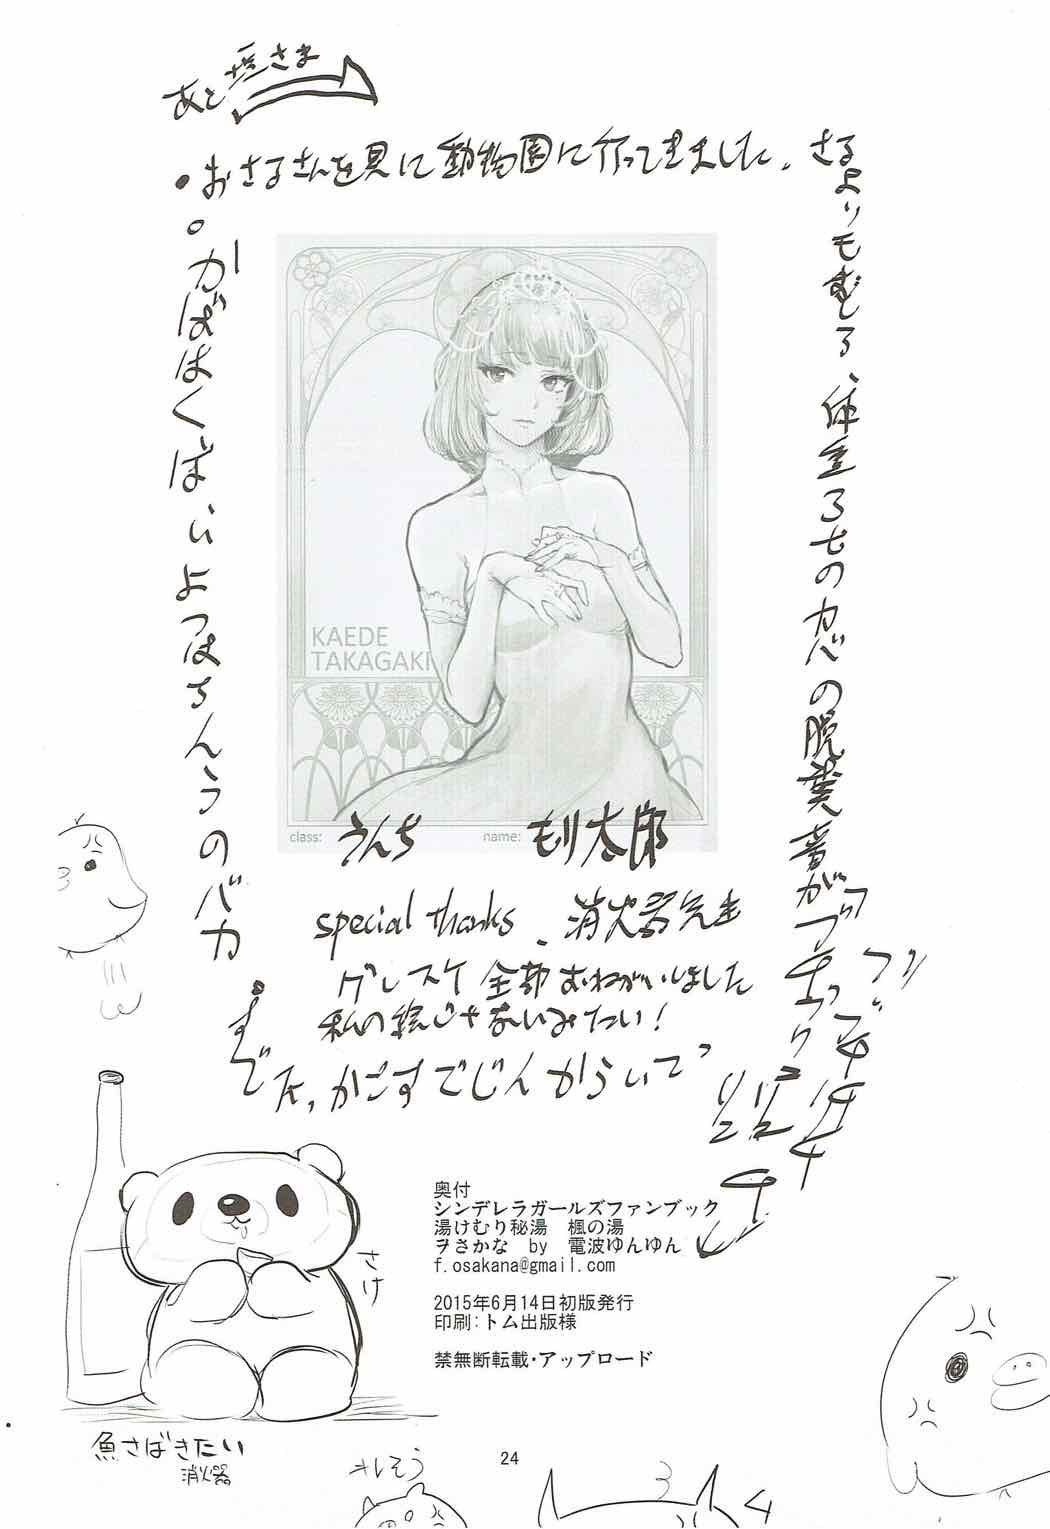 あと塩さま
・おさるさんを見に動物園に行ってきました。さる
よりもむしろ、体重3tのカバの脱糞音が
。かばはくばいよつはちんうのバカ
KAEDE
TAKAGAKI
class: うんち name: もり太郎
special thanks、消火器先生
グレスケ全部おねがいしました
私の絵じゃないみたい!
奥付
シンデレラガールズファンブック
湯けむり秘湯 楓の湯
ヲさかな by 電波ゆんゆん
f.osakana@gmail.com
2015年6月14日初版発行
印刷:トム出版様
禁無断転載・アップロード
さけ
魚さばきたい
消火器
24
キレそう